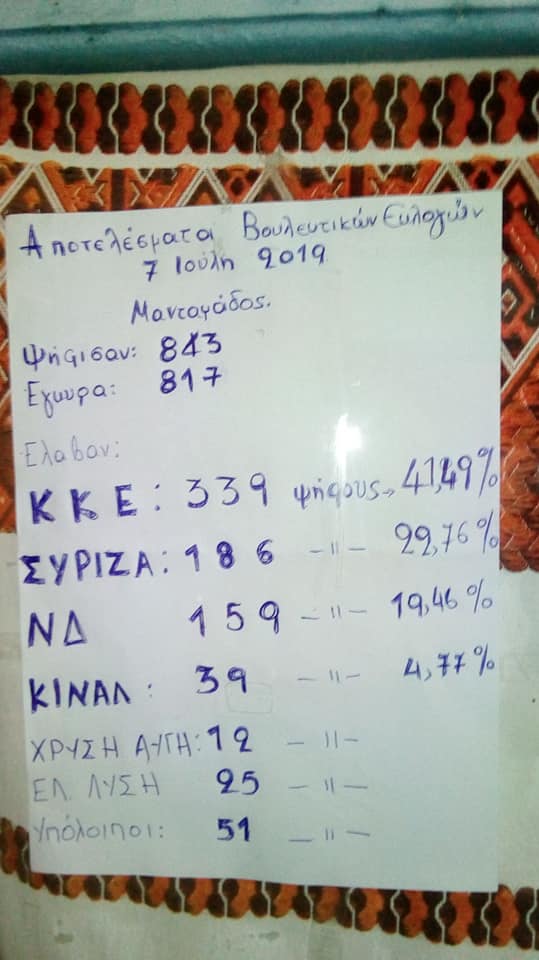 Αποτελέσματα Βουλευτικών Εκλογών
7 Ιούλη 2019
Μανταμάδος.
Ψήφισαν: 843
Εγκυρα: 817
Ελαβαν:
ΚΚΕ: 339 ψήφους → 41,49%
ΣΥΡΙΖΑ: 186 — 〃 — 22,76%
ΝΔ 159 — 〃 — 19,46%
ΚΙΝΑΛ: 39 — 〃 — 4,77%
ΧΡΥΣΗ ΑΥΓΗ: 12 — 〃 —
ΕΛ. ΛΥΣΗ 25 — 〃 —
Υπόλοιποι: 51 — 〃 —